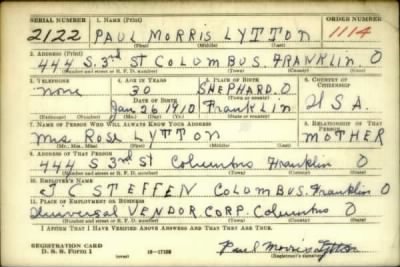 SERIAL NUMBER 1. NAME (Print) ORDER NUMBER
2122 PAUL MORRIS LYTTON 1114
(First) (Middle) (Last)
2. ADDRESS (Print)
444 S. 3rd St COLUMBUS, FRANKLIN. O
(Number and street or R. F. D. number) (Town) (County) (State)
3. TELEPHONE 4. AGE IN YEARS 5. PLACE OF BIRTH 6. COUNTRY OF CITIZENSHIP
None 30 SHEPHARD. O
DATE OF BIRTH
Jan 26 1910 Franklin U S A.
(Exchange) (Number) (Mo.) (Day) (Yr.) (State or country)
7. NAME OF PERSON WHO WILL ALWAYS KNOW YOUR ADDRESS 8. RELATIONSHIP OF THAT PERSON
Mrs Rose LYTTON MOTHER
(Mr., Mrs., Miss) (First) (Middle) (Last)
9. ADDRESS OF THAT PERSON
444 S 3rd St Columbus Franklin O
(Number and street or R. F. D. number) (Town) (County) (State)
10. EMPLOYER'S NAME
J C STEFFEN COLUMBUS. Franklin O
11. PLACE OF EMPLOYMENT OR BUSINESS
Universal VENDOR. CORP. Columbus O
(Number and street or R. F. D. number) (Town) (County) (State)
I AFFIRM THAT I HAVE VERIFIED ABOVE ANSWERS AND THAT THEY ARE TRUE.
REGISTRATION CARD
D. S. S. Form 1 16-17105 Paul Morris Lytton
(Registrant's signature)